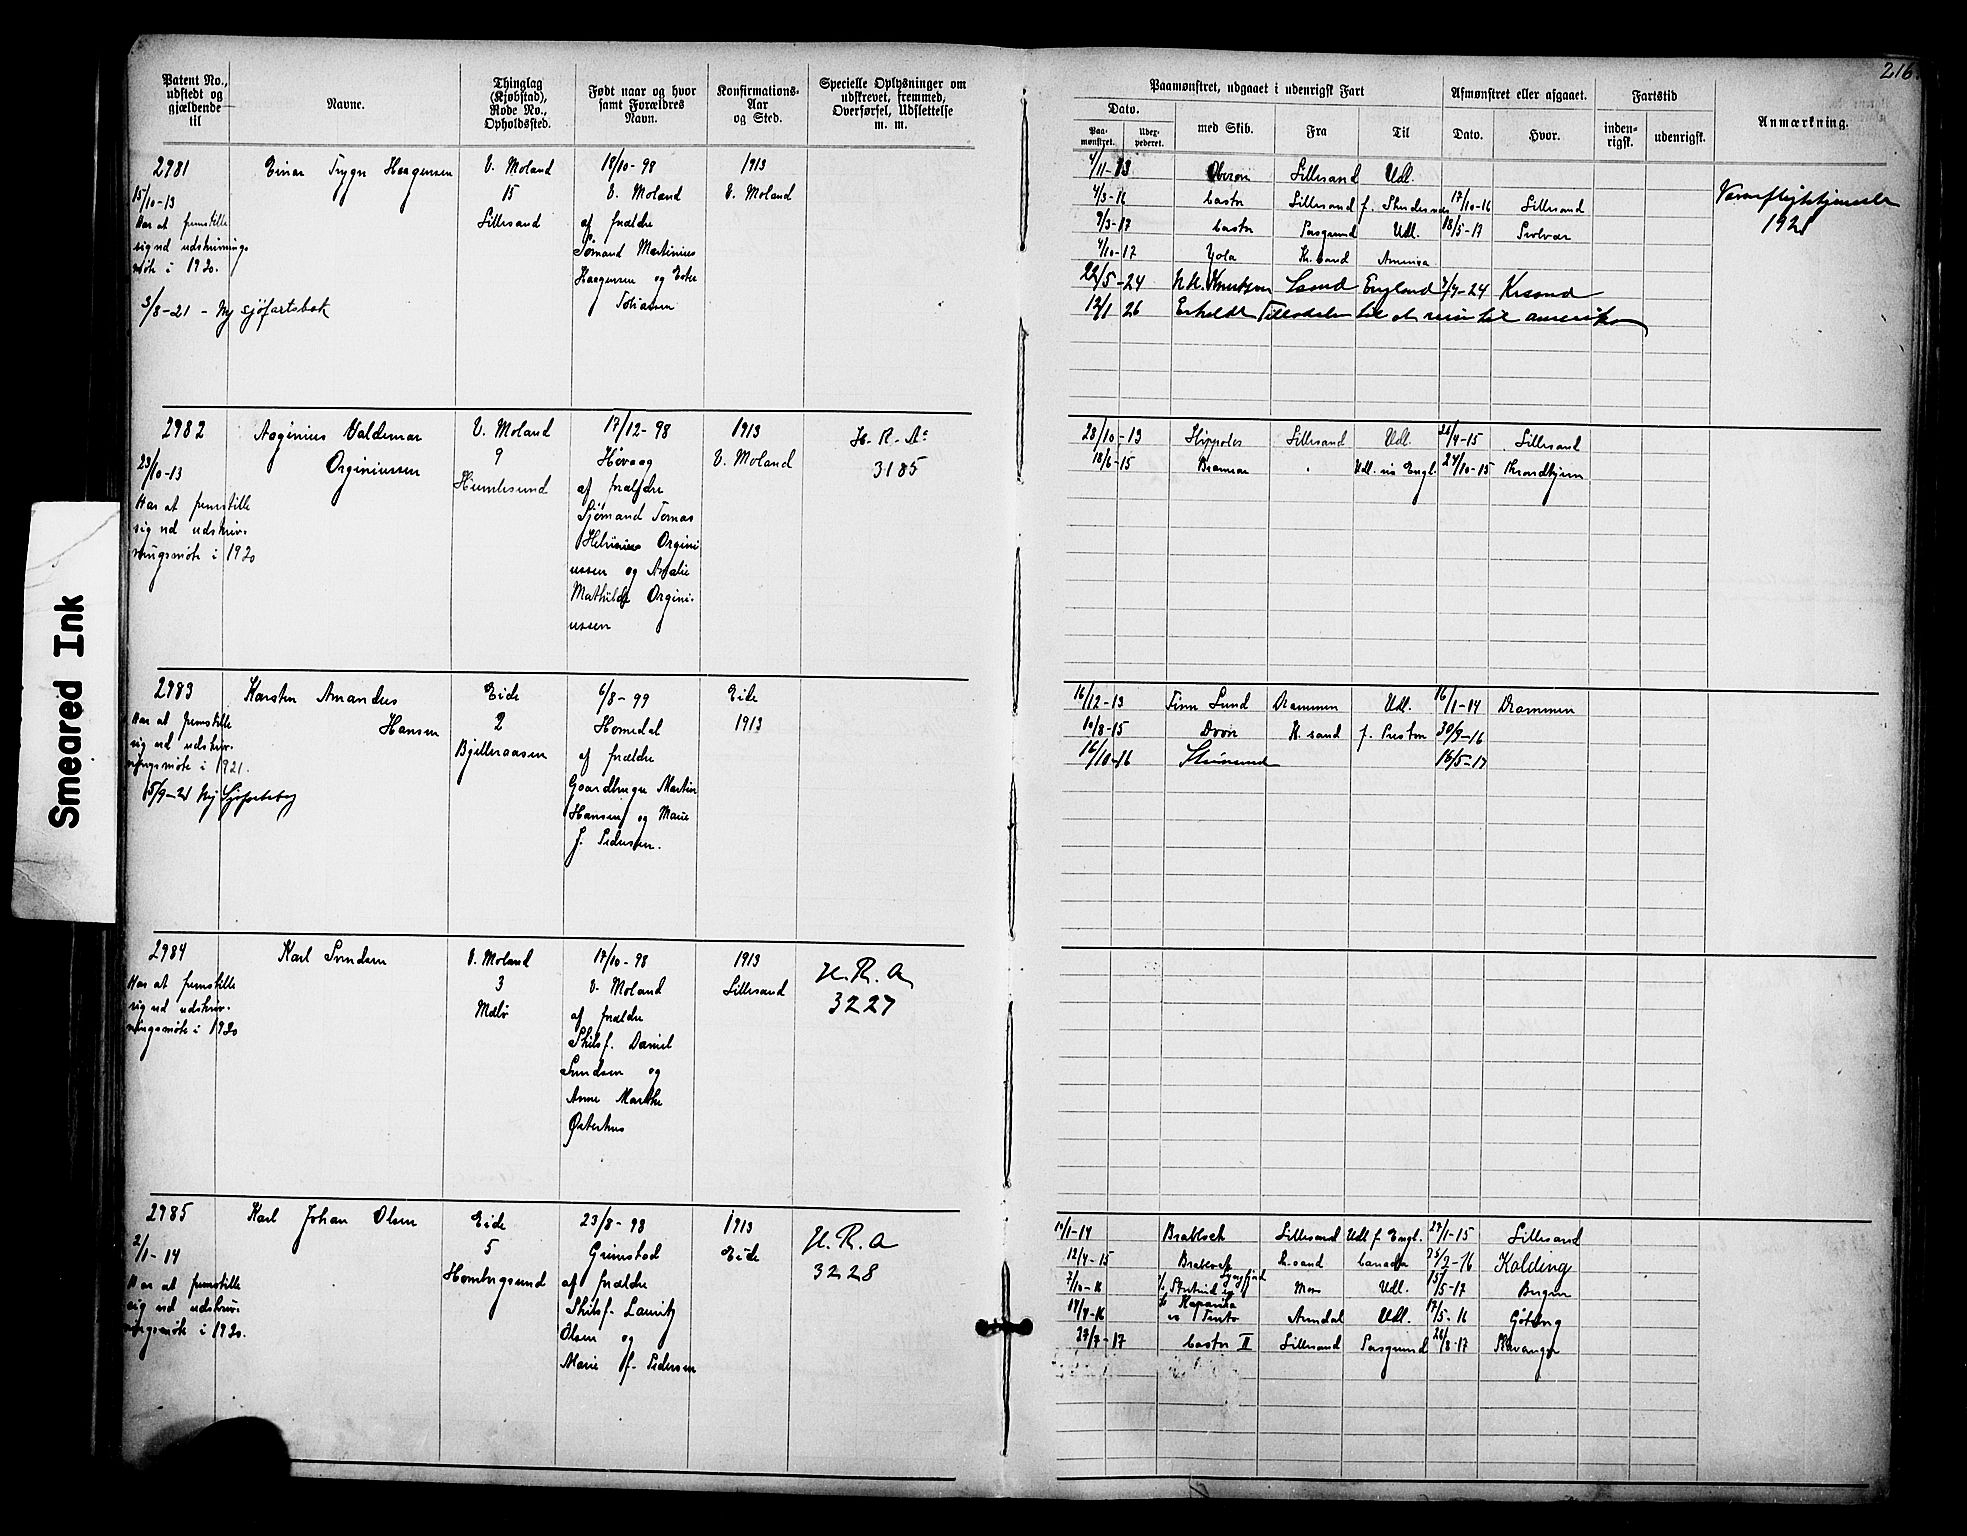 216.
Smeared Ink
Patent No., udstedt og gjældende til
Navne.
Thinglag (Kjøbstad), Rode No., Opholdssted.
Født naar og hvor samt Forældres Navn.
Konfirmations-Aar og Sted.
Specielle Oplysninger om udskrevet, fremmed, Overførsel, Udslettelse m. m.
Paamønstret, udgaaet i udenrigsk Fart
Dato.
Paa-mønstret.
Uder-pederet.
med Skib.
Fra
Til
Afmønstret eller afgaaet.
Dato.
Hvor.
Fartstid
inden-rigsk.
udenrigsk.
Anmærkning.
2981
15/10-13
Har at fremstille
sig ved udskrivnings
møte i 1920.
3/8-21 - Ny sjøfartsbok
Einar Trygve Haagensen
V. Moland
15
Lillesand
18/10-98
V. Moland
af forældre
Sømand Martinius
Haagensen og
1913
V. Moland
4/11-13 Oberon Lillesand Udl.
4/3-16 Castor Lillesand f. 17/10-16 Lillesand
9/3-17 Castor Porsgrund Udl. 18/5-17
4/10-17 Yola Kr.sand Amerika
22/5-24 Lsand England 7/7-24 Krsand
12/1 26 Erholdt Tilladelse til at reise til amerika
Værnepligtstjeneste
1921
2982
23/10-13
Har at fremstille
sig ved udskriv-
ningsmøte i 1920
Aaginius Valdemar
Orginiussen
V. Moland
9
Humlesund
17/12-98
Høvaag
af forældre
Sjømand Tomas
Orgini
ussen og Amalie
Mathilde Orgini-
ussen
1913
V. Moland
H.R.A:
3185
28/10-13 Lillesand Udl. 26/4-15 Lillesand
18/6-15 Udl. via Engl. 27/10-15 Throndhjem
2983
Har at fremstille
sig ved udskriv-
ningsmøte i 1921.
5/9-21 Ny Sjøfartsbog
Karsten Amandus
Hansen
Eide
2
Bjelleraasen
6/8-99
Homedal
af forældre
Gaardbruger Martin
Hansen og Marie
f. Pedersen.
Eide
1913
16/12-13 Finn Lund Drammen Udl. 16/1-14 Drammen
10/8-15 Dvon K.sand f. Preston 30/9-16
16/10-16 16/5-17
2984
Har at fremstille
sig ved udskriv-
ningsmøte i 1920
Karl Svendsen
V. Moland
3
Malø
17/10-98
V. Moland
af forældre
Skibsf. Daniel
Svendsen og
Anne Marthe
Østerhus
1913
Lillesand
H.R.A
3227
2985
2/1-14
Har at fremstille
sig ved udskriv-
ningsmøte i 1920.
Karl Johan Olsen
Eide
5
Homborgsund
23/8-98
Grimstad
af forældre
Skibsf. Lauritz
Olsen og
Marie f. Pedersen
1913
Eide
H.R.A
3228
10/1-14 Lillesand Udl f. Engl. 27/1-15 Lillesand
12/4-15 K.sand Canada 25/2-16 Kolding
7/10-16 Moss Udl. 15/5-17 Bergen
14/4-16 Tento Arendal Udl. 17/5-16 Gøtborg
27/7-17 Castor II Lillesand Porsgrund 26/8-17 Stavanger